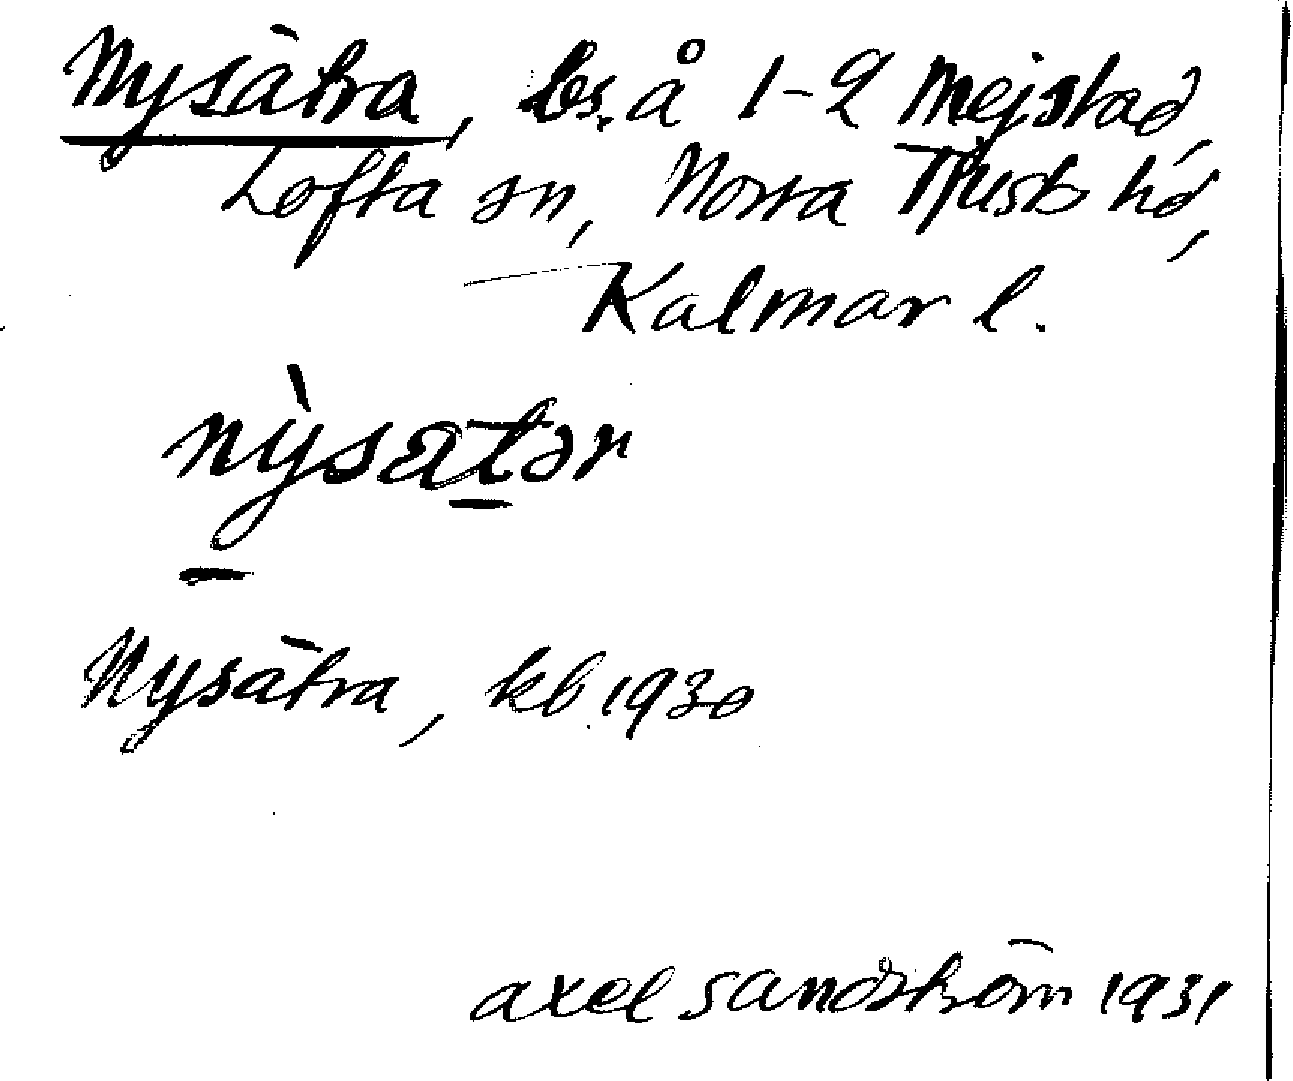 Nysätra, ls. å 1-2 Mejstad,
Lofta sn, Norra Tjusts hd,
Kalmar l.
nỳsatər
Nysätra, kb. 1930
axel sandström 1931